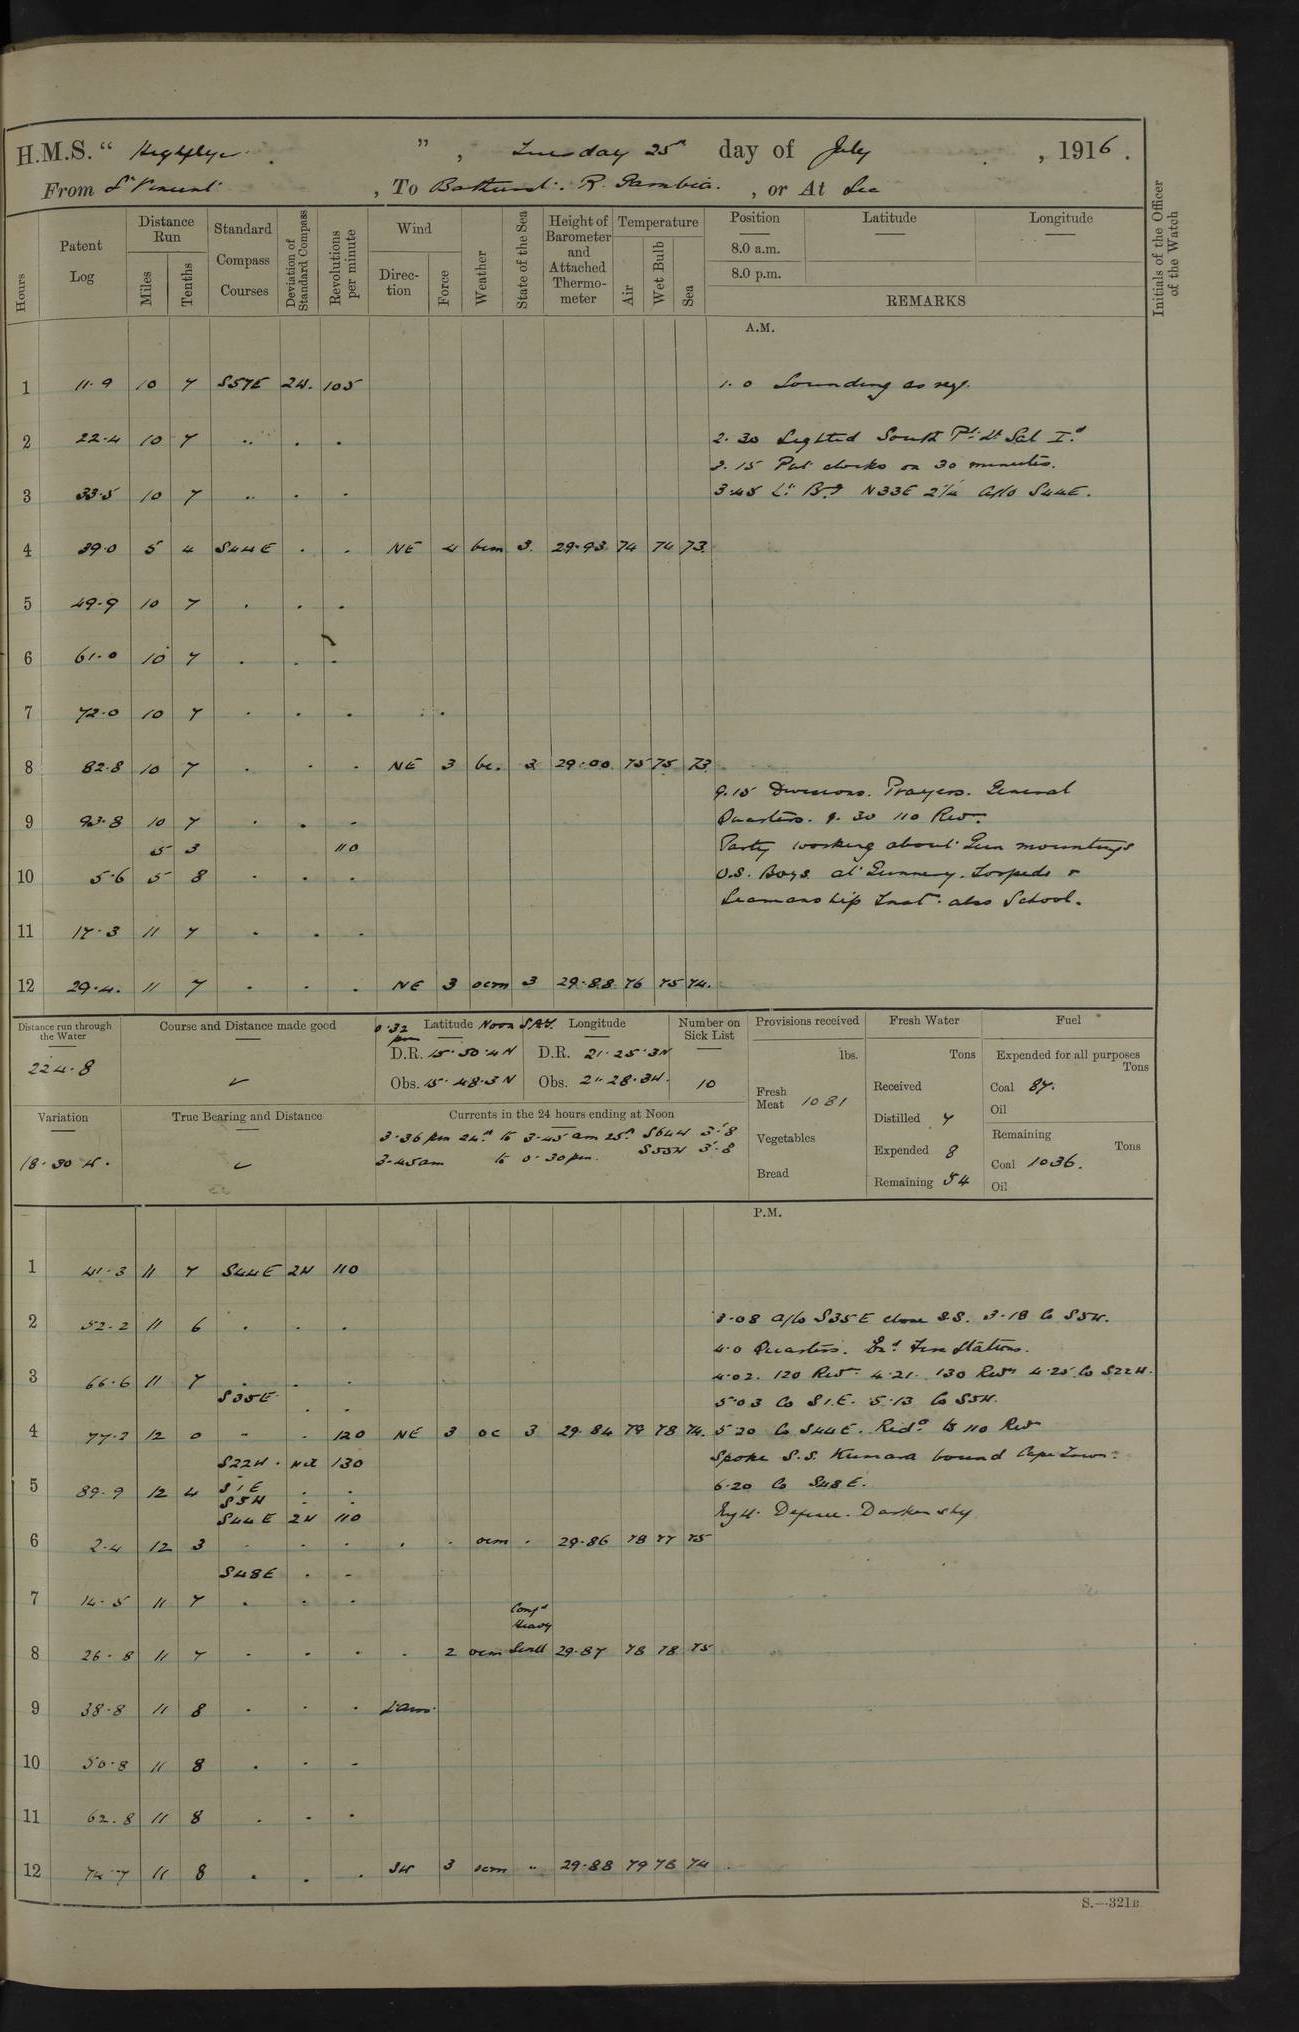 H.M.S. "Highflyer", Tuesday 25th day of July, 1916.
From St Vincent, To Bathurst. R. Gambia., or At Sea
Hours
Patent Log
Distance Run
Miles
Tenths
Standard Compass Courses
Deviation of Standard Compass
Revolutions per minute
Wind
Direction
Force
Weather
State of the Sea
Height of Barometer and Attached Thermometer
Temperature
Air
Wet Bulb
Sea
Position
8.0 a.m.
8.0 p.m.
Latitude
Longitude
REMARKS
Initials of the Officer of the Watch
A.M.
1 11.9 10 7 S57E 2W. 105 1.0 Sounding as req.
2 22.4 10 7 " . . 2.30 Sighted South Pt. Lt Sal Id
3.15 Put clocks on 30 minutes.
3 33.5 10 7 " . . 3.45 Lt Brg N33E 2¼ A/Co S44E.
4 39.0 5 4 S44E . . NE 4 bcm 3. 29.93 74 74 73.
5 49.9 10 7 . . .
6 61.0 10 7 . . .
7 72.0 10 7 . . . . .
8 82.8 10 7 . . . NE 3 bc. 3 29.00 75 75 73.
9.15 Divisions. Prayers. General
9 93.8 10 7 . . . Quarters. 9.30 110 Rev.
5 3 110 Party working about Gun mountings
10 5.6 5 8 . . . O.S. Boys at Gunnery. Torpedo &
Seamanship Inst. also School.
11 17.3 11 7 . . .
12 29.4. 11 7 . . . NE 3 ocm 3 29.88 76 75 74.
Distance run through the Water
224.8
Course and Distance made good
✓
0.32 pm Latitude Noon SAT. Longitude
D.R. 15.50.4N D.R. 21.25.3W
Obs. 15.48.3N Obs. 21.28.3W.
Number on Sick List
10
Variation
18.30 W.
True Bearing and Distance
✓
Currents in the 24 hours ending at Noon
3.36 pm 24th to 3.45 am 25th S64W 3'.8
3.45am to 0.30pm. S55W 3'.8
Provisions received
lbs.
Fresh Meat 1081
Vegetables
Bread
Fresh Water
Tons
Received
Distilled 7
Expended 8
Remaining 54
Fuel
Expended for all purposes
Tons
Coal 87.
Oil
Remaining
Tons
Coal 1036.
Oil
P.M.
1 41.3 11 7 S44E 2W 110
2 52.2 11 6 . . . 3.08 A/Co S35E close S.S. 3.18 Co S5W.
4.0 Quarters. Exd Fire Stations.
3 66.6 11 7 . . . 4.02. 120 Revs 4.21. 130 Revs 4.25 Co S22W.
S35E . . 5.03 Co S1E. 5.13 Co S5W.
4 77.2 12 0 " . 120 NE 3 oc 3 29.84 79 78 74. 5.20 Co S44E. Redd to 110 Rev
S22W . Nil 130 Spoke S.S. Kumara bound Cape Town.
5 89.9 12 4 S1E . . 6.20 Co S48E.
S5W . .
S44E 2W 110 Night Defence. Darken ship
6 2.4 12 3 . . . . . ocm . 29.86 78 77 75
S48E . .
7 14.5 11 7 . . .
Confd Heavy
8 26.8 11 7 . . . . 2 ocm Swell 29.87 78 78 75
9 38.8 11 8 . . . L.Airs.
10 50.8 11 8 . . .
11 62.8 11 8 . . .
12 74.7 11 8 . . . SW 3 ocm " 29.88 79 78 74
S.—321B